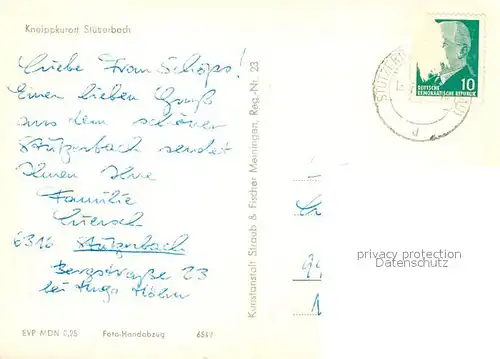 Kneippkurort Stützerbach
Liebe Frau Schöps!
Einen lieben Gruß
aus dem schönen
Stützerbach sendet
Ihnen Ihre
Familie
6316 Stützerbach
Bergstraße 23
bei Hugo Höhn
EVP MDN 0,25 Foto-Handabzug
Kunstanstalt Straub & Fischer Meiningen, Reg.-Nr. 23
10
DEUTSCHE
DEMOKRATISCHE REPUBLIK
d
privacy protection
Datenschutz